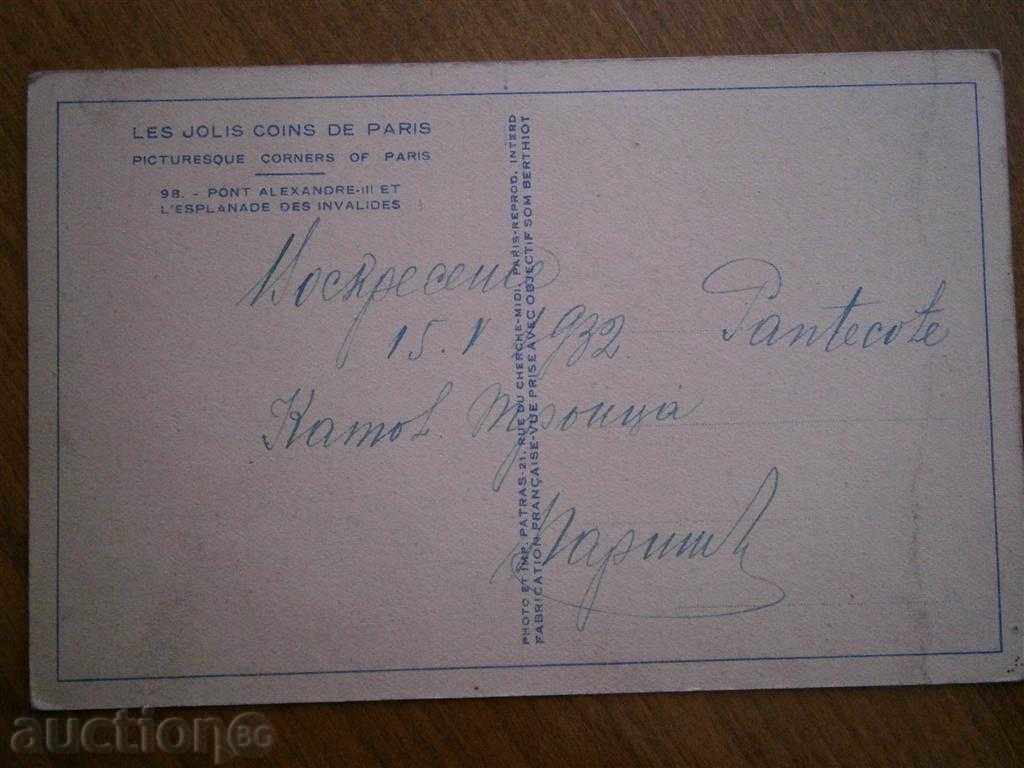 LES JOLIS COINS DE PARIS
PICTURESQUE CORNERS OF PARIS
98. - PONT ALEXANDRE-III ET
L'ESPLANADE DES INVALIDES
PHOTO ET IMP. PATRAS-21, RUE DU CHERCHE-MIDI, PARIS-REPROD. INTERD
FABRICATION FRANÇAISE-VUE PRISE AVEC OBJECTIF SOM BERTHIOT
15. V 1932
Pantecote
Троица
Парижъ
auction BG